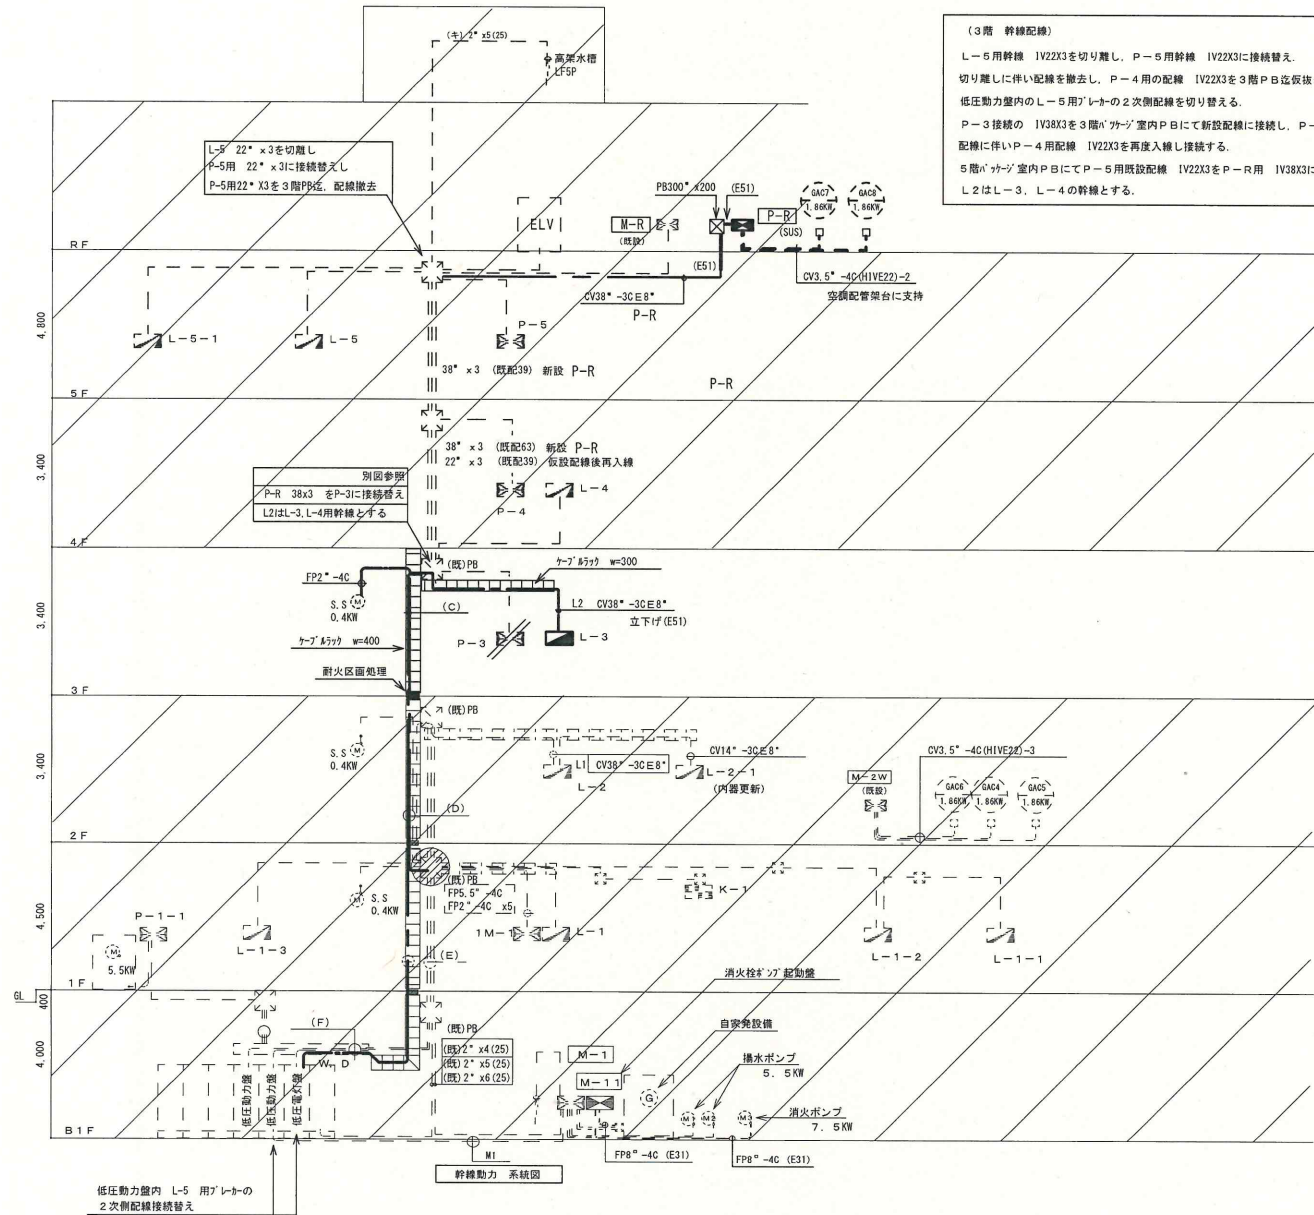 (キ) 2° x5(25)
高架水槽
LF5P
(3階 幹線配線)
L-5用幹線 IV22X3を切り離し、P-5用幹線 IV22X3に接続替え.
切り離しに伴い配線を撤去し、P-4用の配線 IV22X3を3階PB迄仮抜
低圧動力盤内のL-5用ﾌﾞﾚｰｶｰの2次側配線を切り替える.
P-3接続の IV38X3を3階ﾊﾟｯｹｰｼﾞ室内PBにて新設配線に接続し、P-
配線に伴いP-4用配線 IV22X3を再度入線し接続する.
5階ﾊﾟｯｹｰｼﾞ室内PBにてP-5用既設配線 IV22X3をP-R用 IV38X3に
L2はL-3、L-4の幹線とする.
L-5 22° x3を切離し
P-5用 22° x3に接続替えし
P-5用22° X3を3階PB迄、配線撤去
PB300° x200
(E51)
ELV
M-R
(既設)
P-R
(SUS)
GAC7
1.86KW
GAC8
1.86KW
RF
(E51)
CV38° -3CE8°
P-R
CV3.5° -4C(HIVE22)-2
空調配管架台に支持
4,800
L-5-1
L-5
P-5
38° x3 (既配39) 新設 P-R
P-R
5F
38° x3 (既配63) 新設 P-R
22° x3 (既配39) 仮設配線後再入線
3,400
別図参照
P-R 38x3 をP-3に接続替え
L2はL-3,L-4用幹線とする
P-4
L-4
4F
(既)PB
ｹｰﾌﾞﾙﾗｯｸ w=300
FP2° -4C
S.S
0.4KW
M
(C)
L2 CV38° -3CE8°
立下げ(E51)
3,400
ｹｰﾌﾞﾙﾗｯｸ w=400
P-3
L-3
耐火区画処理
3F
(既)PB
S.S
0.4KW
M
CV14° -3CE8°
L1
CV38° -3CE8°
L-2
L-2-1
(内器更新)
CV3.5° -4C(HIVE22)-3
M-2W
(既設)
GAC6
1.86KW
GAC4
1.86KW
GAC5
1.86KW
3,400
(D)
2F
(既)PB
FP5.5° -4C
FP2° -4C x5
S.S
0.4KW
M
K-1
4,500
P-1-1
M
5.5KW
L-1-3
1M-1
L-1
L-1-2
L-1-1
(E)
消火栓ﾎﾟﾝﾌﾟ起動盤
1F
GL
400
(F)
(既)PB
自家発設備
(既)2° x4(25)
(既)2° x5(25)
(既)2° x6(25)
M-1
揚水ポンプ
5.5KW
4,000
W D
M-11
G
低圧動力盤
低圧動力盤
低圧電灯盤
M1
M2
M3
消火ポンプ
7.5KW
B1F
M1
FP8° -4C (E31)
FP8° -4C (E31)
幹線動力 系統図
低圧動力盤内 L-5 用ﾌﾞﾚｰｶｰの
2次側配線接続替え